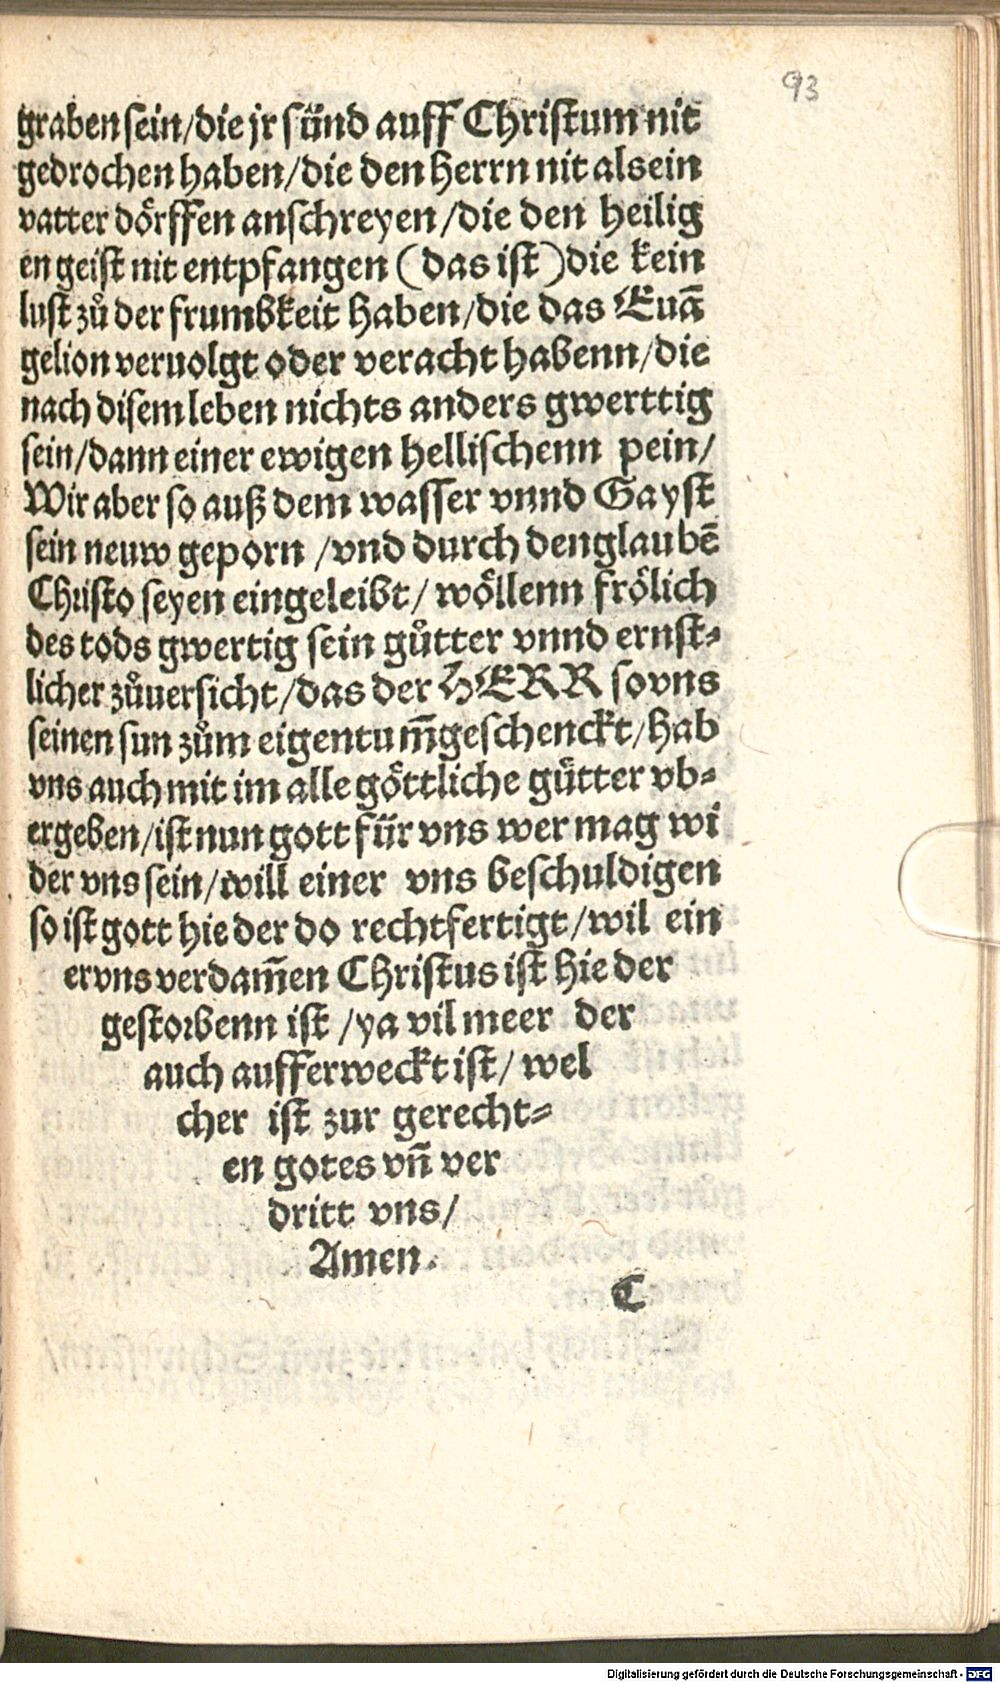 93
graben sein/die jr sünd auff Christum nit
gedrochen haben/die den Herrn nit als ein
vatter dörffen anschreyen/die den heilig
en geist nit entpfangen (das ist) die kein
lust zů der frumbkeit haben/die das Euā
gelion veruolgt oder veracht habenn/die
nach disem leben nichts anders gwerttig
sein/dann einer ewigen hellischenn pein/
Wir aber so auß dem wasser vnnd Gayst
sein neuw geporn /vnd durch den glaubē
Christo seyen eingeleibt/ wöllenn frölich
des tods gwertig sein gůtter vnnd ernst⸗
licher zůuersicht/das der HERR so vns
seinen sun zům eigentum̃ geschenckt/hab
vns auch mit im alle göttliche gütter vb⸗
ergeben/ist nun gott für vns wer mag wi
der vns sein/will einer vns beschuldigen
so ist gott hie der do rechtfertigt/wil ein
er vns verdam̃en Christus ist hie der
gestorbenn ist /ya vil meer der
auch aufferweckt ist/ wel
cher ist zur gerecht⸗
en gotes vñ ver
dritt vns/
Amen.
C
Digitalisierung gefördert durch die Deutsche Forschungsgemeinschaft - DFG